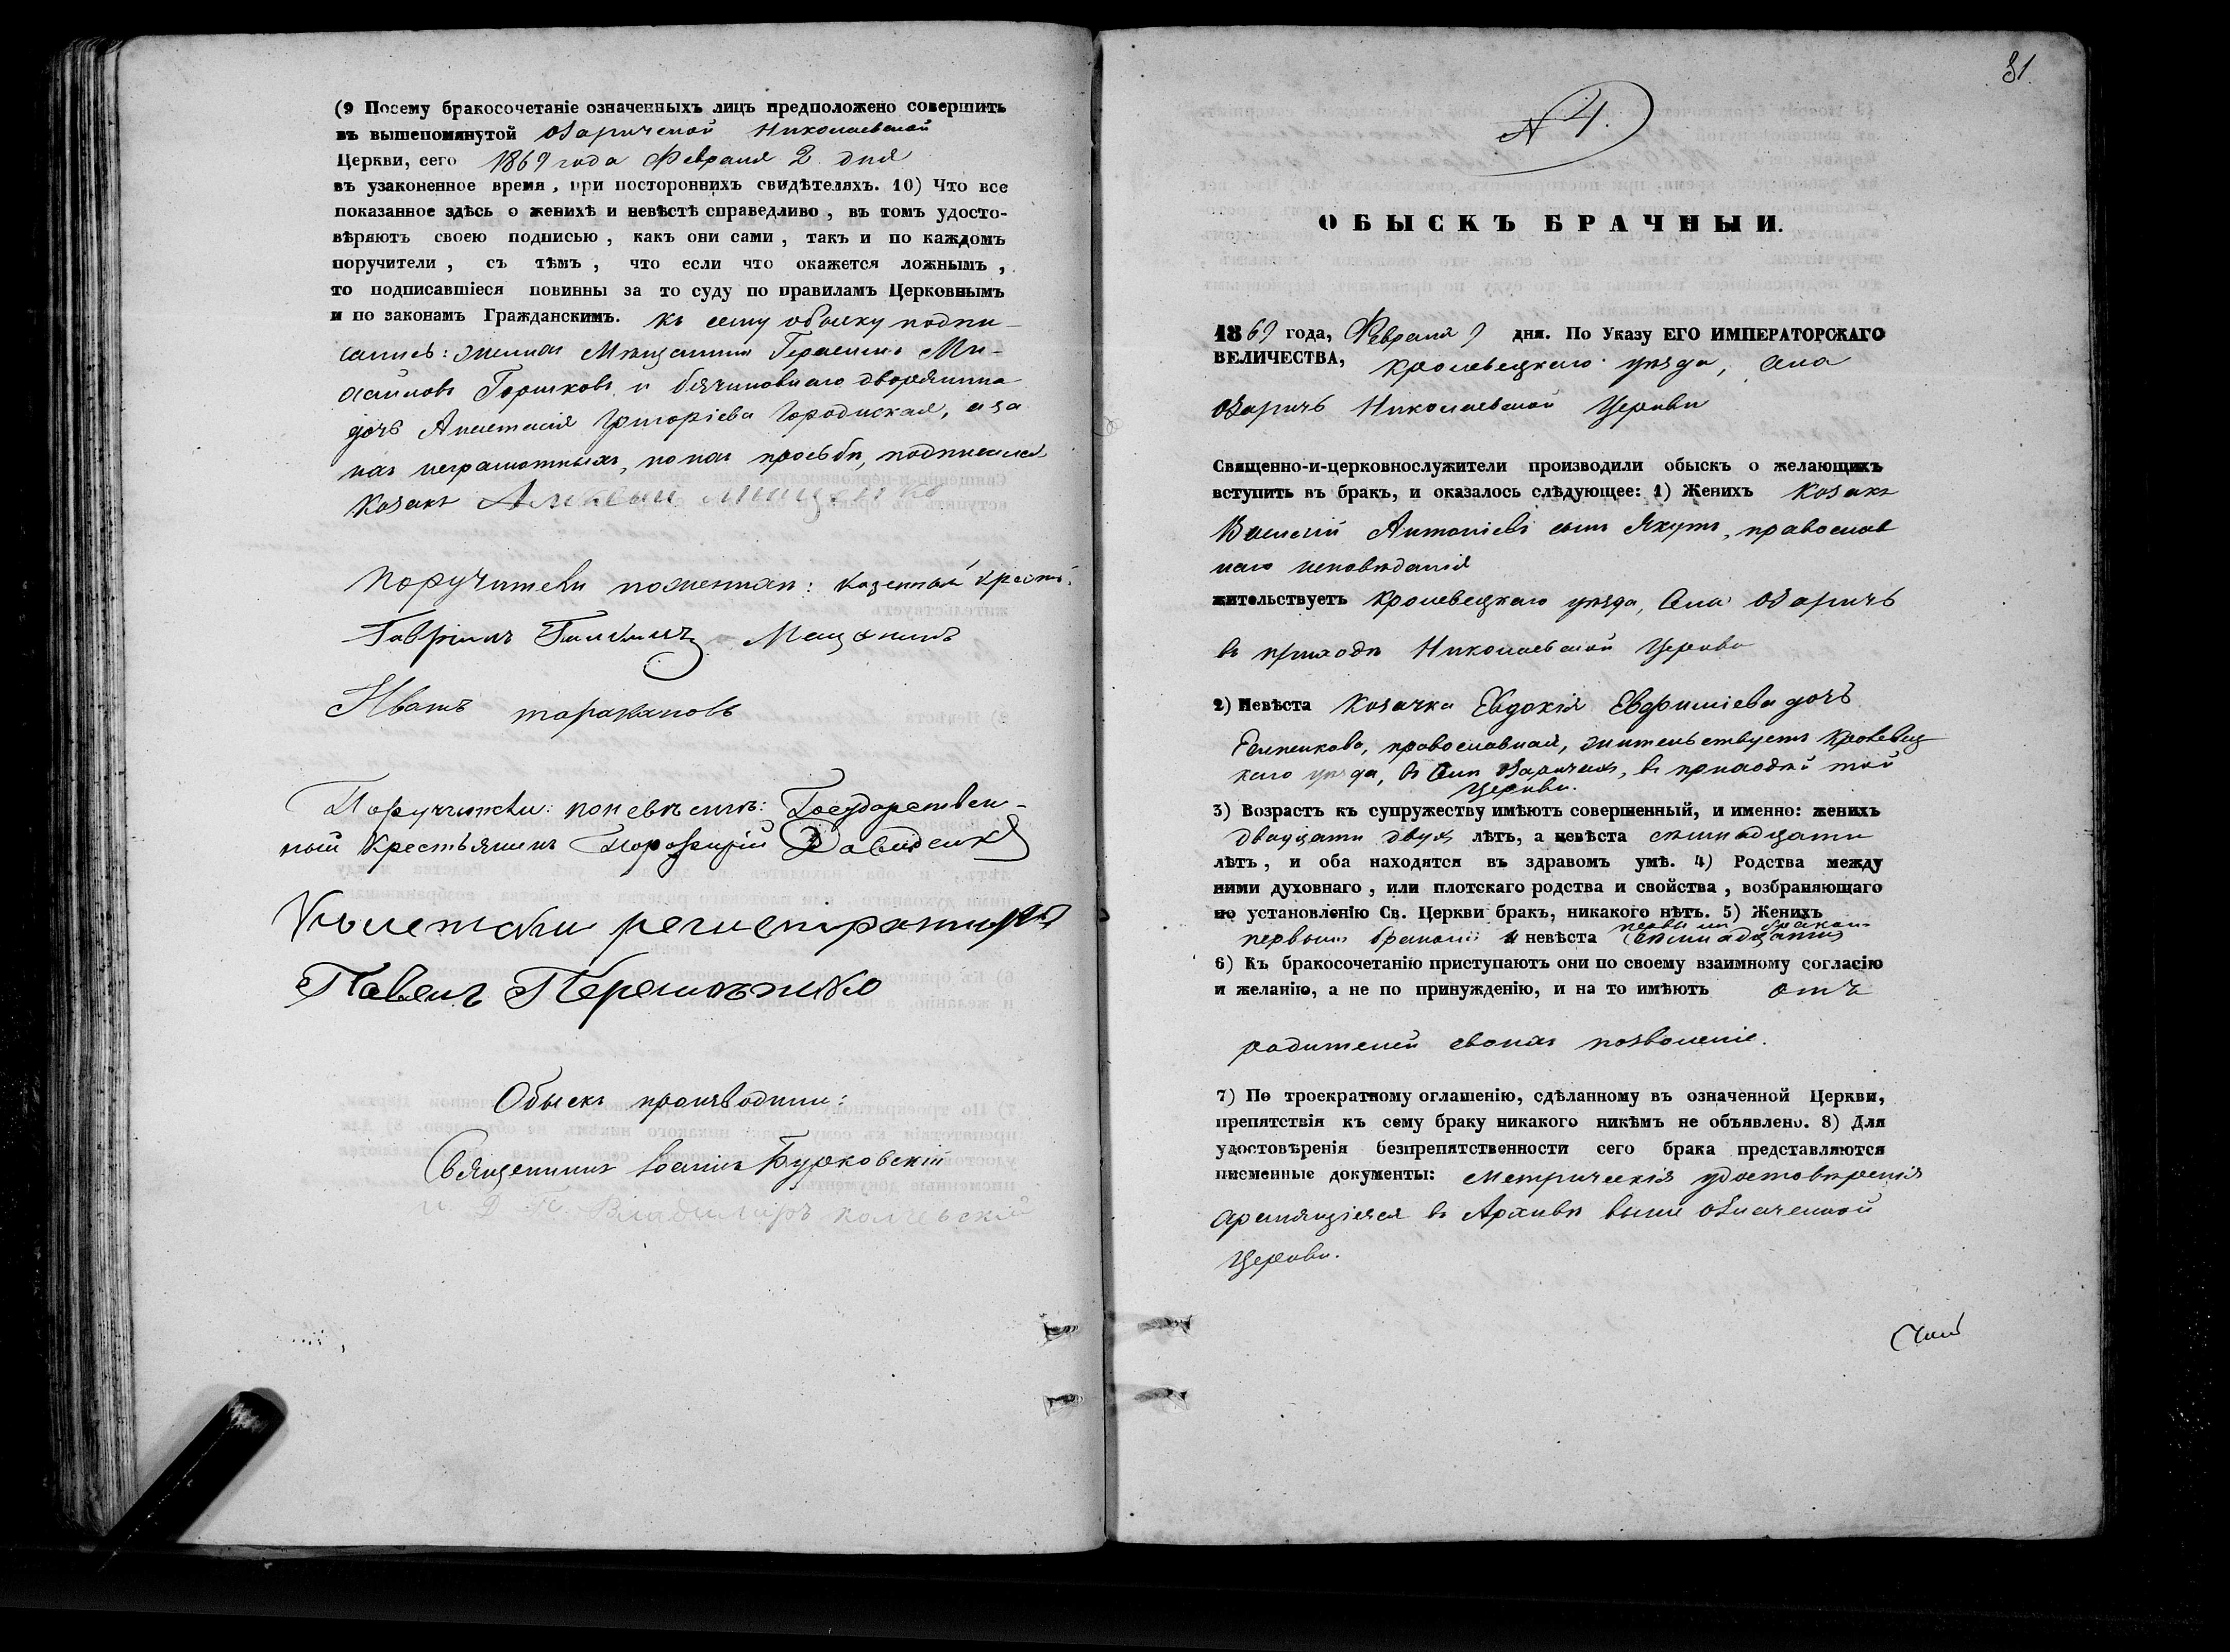 (9 Посему бракосочетаніе означенныхъ лицъ предположено совершить
въ вышепомянутой Озаричской Николаевской
Церкви, сего 1869 года Февраля 2 дня
въ узаконенное время, при постороннихъ свидѣтеляхъ. 10) Что все
показанное здѣсь о женихѣ и невѣстѣ справедливо, въ томъ удосто-
вѣряютъ своею подписью, какъ они сами, такъ и по каждомъ
поручители, съ тѣмъ, что если что окажется ложнымъ,
то подписавшіеся повинны за то суду по правиламъ Церковнымъ
и по законамъ Гражданскимъ. Къ сему обыску подпи-
сались: женихъ Мѣщанинъ Герасимъ Ми-
хайловъ Горшковъ и безчиновнаго дворянина
дочь Анастасія Григоріева Городиская, а за
ихъ неграмотныхъ, по ихъ просьбѣ, подписался
Козакъ
Поручители по женихѣ: казенный крестья.
Гавріилъ Мещанинъ
Иванъ таракановъ
Поручители: по невѣстѣ: Государствен-
ный Крестьянинъ Порфирій Давиденко
регистраторъ
Павелъ
Обыскъ производили:
Священникъ Іоаннъ Бурковскій
и. д. П. Владимиръ
31.
N 4.
ОБЫСКЪ БРАЧНЫЙ.
1869 года, Февраля 9 дня. По Указу ЕГО ИМПЕРАТОРСКАГО
ВЕЛИЧЕСТВА, Кролевецкаго уѣзда, села
Озаричъ Николаевской Церкви
Священно-и-церковнослужители производили обыскъ о желающихъ
вступить въ бракъ, и оказалось слѣдующее: 1) Женихъ Козакъ
Василій Антоніевъ сынъ Якутъ, православ
наго исповѣданія
жительствуетъ Кролевецкаго уѣзда, Села Озаричъ
въ приходѣ Николаевской Церкви
2) Невѣста Козачка Евдокія Евфиміева дочь
православная, жительствуетъ Кролевец
каго уѣзда, въ Селѣ Озаричахъ, въ приходѣ той
Церкви.
3) Возрастъ къ супружеству имѣютъ совершенный, и именно: женихъ
двадцати двухъ лѣтъ, а невѣста семнадцати
лѣтъ, и оба находятся въ здравомъ умѣ. 4) Родства между
ними духовнаго, или плотскаго родства и свойства, возбраняющаго
по установленію Св. Церкви бракъ, никакого нѣтъ. 5) Женихъ
первымъ бракомъ
первымъ бракомъ а невѣста семнадцати
6) Къ бракосочетанію приступаютъ они по своему взаимному согласію
и желанію, а не по принужденію, и на то имѣютъ отъ
родителей своихъ позволеніе.
7) По троекратному оглашенію, сдѣланному въ означенной Церкви,
препятствія къ сему браку никакого никѣмъ не объявлено. 8) Для
удостовѣренія безпрепятственности сего брака представляются
писменные документы: метрическія удостовѣренія
хранящіяся въ Архивѣ выше означенной
Церкви.